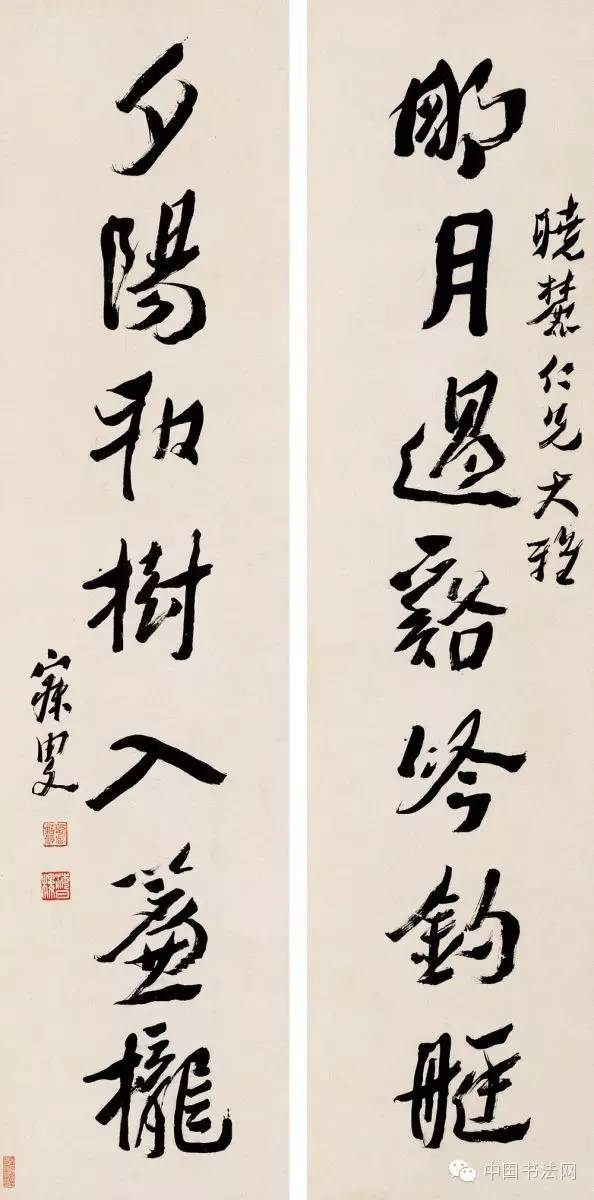 曉麓仁兄大雅
明月過谿吟釣艇
夕陽和樹入簾櫳
寐叟
中国书法网